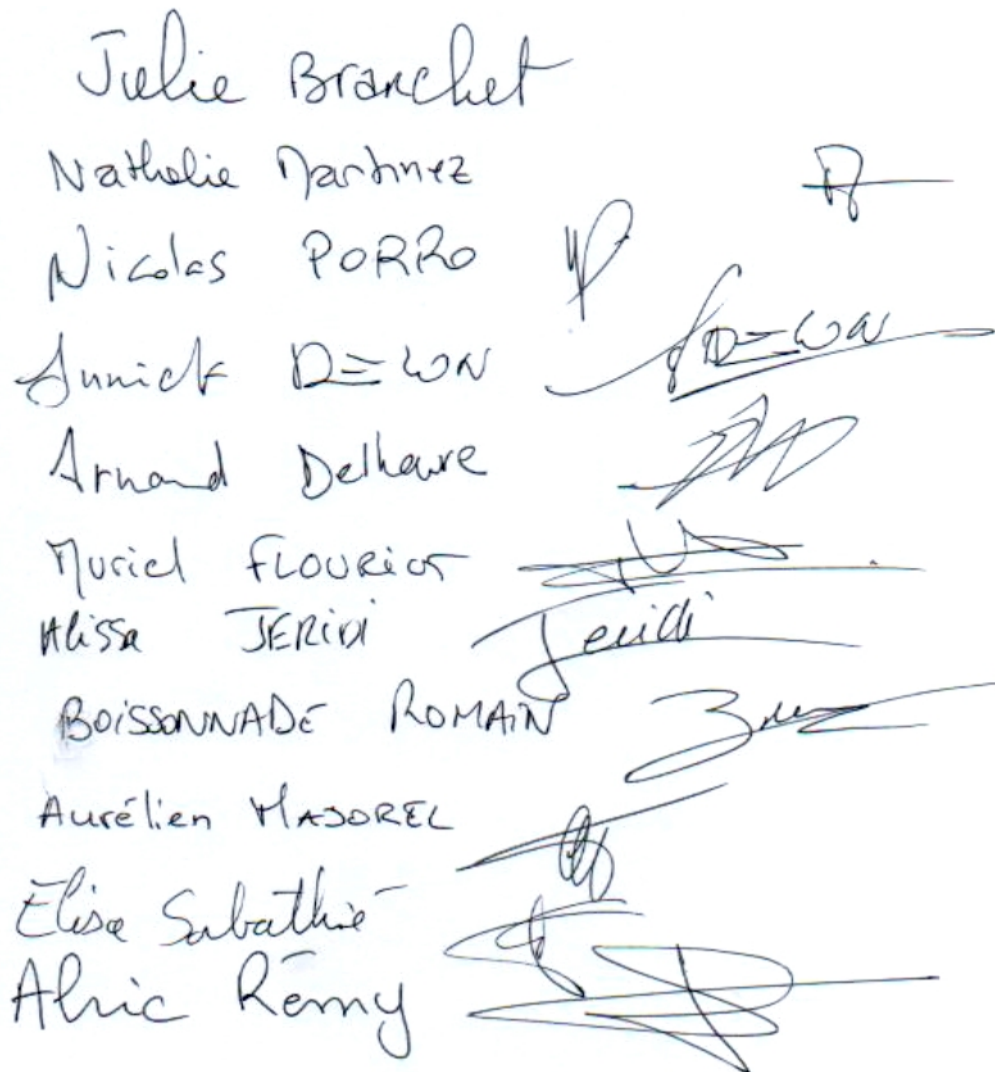 Julie Branchet
Nathalie Martinez
Nicolas PORRO
Annick DELON DELON
Arnaud Delheure
Muriel FLOURIOT
Alissa JERIDI Jeridi
BOISSONNADE ROMAIN
Aurélien MAJOREL
Elisa Sabathié
Alric Rémy